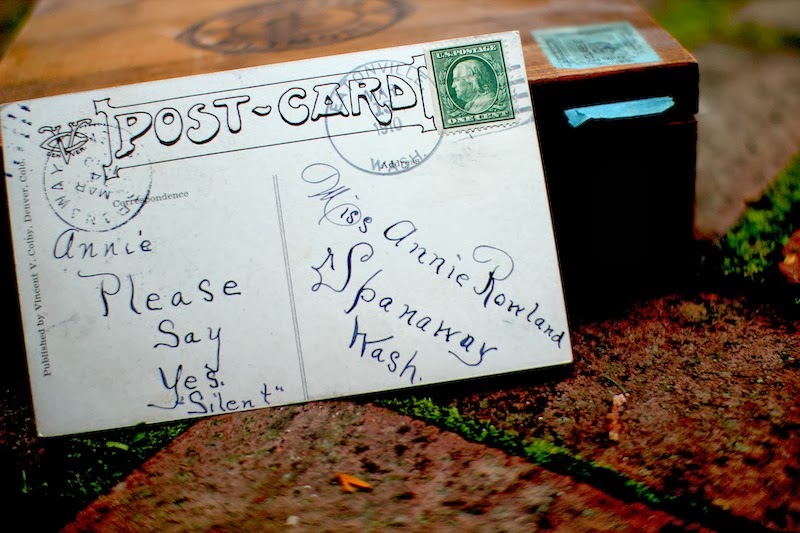 POST-CARD
U.S. POSTAGE
ONE CENT
1910
WASH.
SPANAWAY
MAR
Correspondence
Address
Annie
Please
Say
Yes.
"Silent"
Miss Annie Rowland
Spanaway
Wash.
Published by Vincent V. Colby, Denver, Colo.